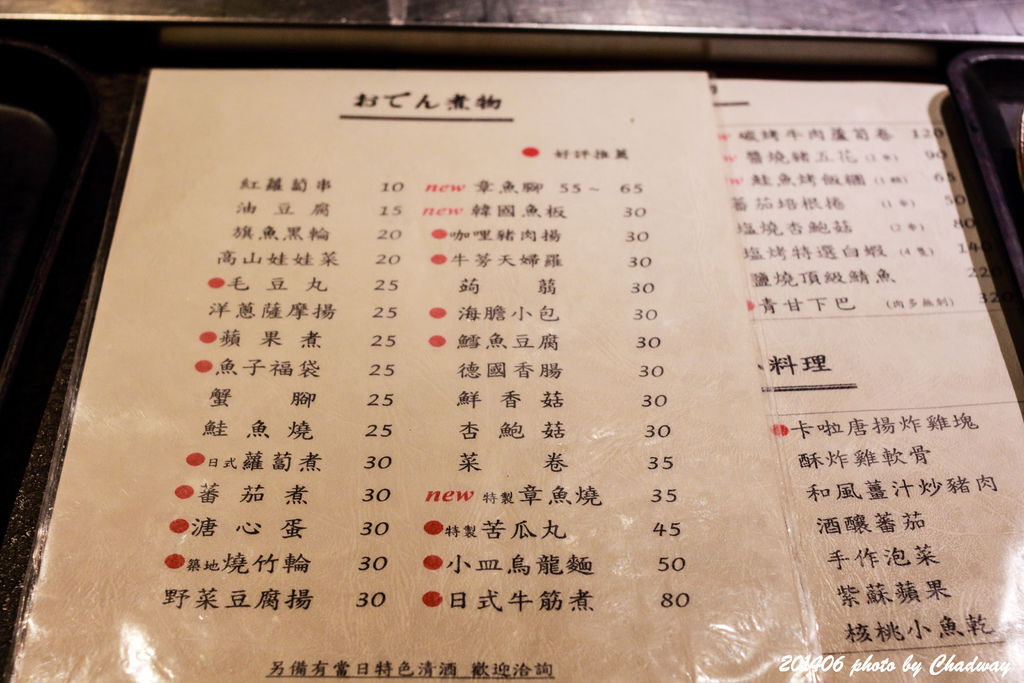 おでん煮物
● 好評推薦
紅蘿蔔串 10
油豆腐 15
旗魚黑輪 20
高山娃娃菜 20
●毛豆丸 25
洋蔥薩摩揚 25
●蘋果煮 25
●魚子福袋 25
蟹腳 25
鮭魚燒 25
●日式蘿蔔煮 30
●蕃茄煮 30
●溏心蛋 30
●築地燒竹輪 30
野菜豆腐揚 30
new 章魚腳 55~ 65
new 韓國魚板 30
●咖哩豬肉揚 30
●牛蒡天婦羅 30
蒟蒻 30
●海膽小包 30
●鱈魚豆腐 30
德國香腸 30
鮮香菇 30
杏鮑菇 30
菜卷 35
new 特製章魚燒 35
●特製苦瓜丸 45
●小皿烏龍麵 50
●日式牛筋煮 80
另備有當日特色清酒 歡迎洽詢
碳烤牛肉蘆筍卷 120
醬燒豬五花(1串) 90
鮭魚烤飯糰(1顆) 65
蕃茄培根捲 (1串) 50
塩燒杏鮑菇 (2串) 80
塩烤特選白蝦 (4隻) 140
鹽燒頂級鯖魚 220
●青甘下巴 (肉多無刺) 320
料理
●卡啦唐揚炸雞塊
酥炸雞軟骨
和風薑汁炒豬肉
酒釀蕃茄
手作泡菜
紫蘇蘋果
核桃小魚乾
201406 photo by Chadway